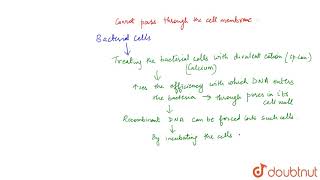 Cannot pass through the cell membrane.
Bacterial cells
Treating the bacterial cells with divalent cation (sp ion)
(Calcium)
↑ses the efficiency with which DNA enters
the bacteria → through pores in its
cell wall
Recombinant DNA can be forced into such cells.
By incubating the cells.
doubtnut